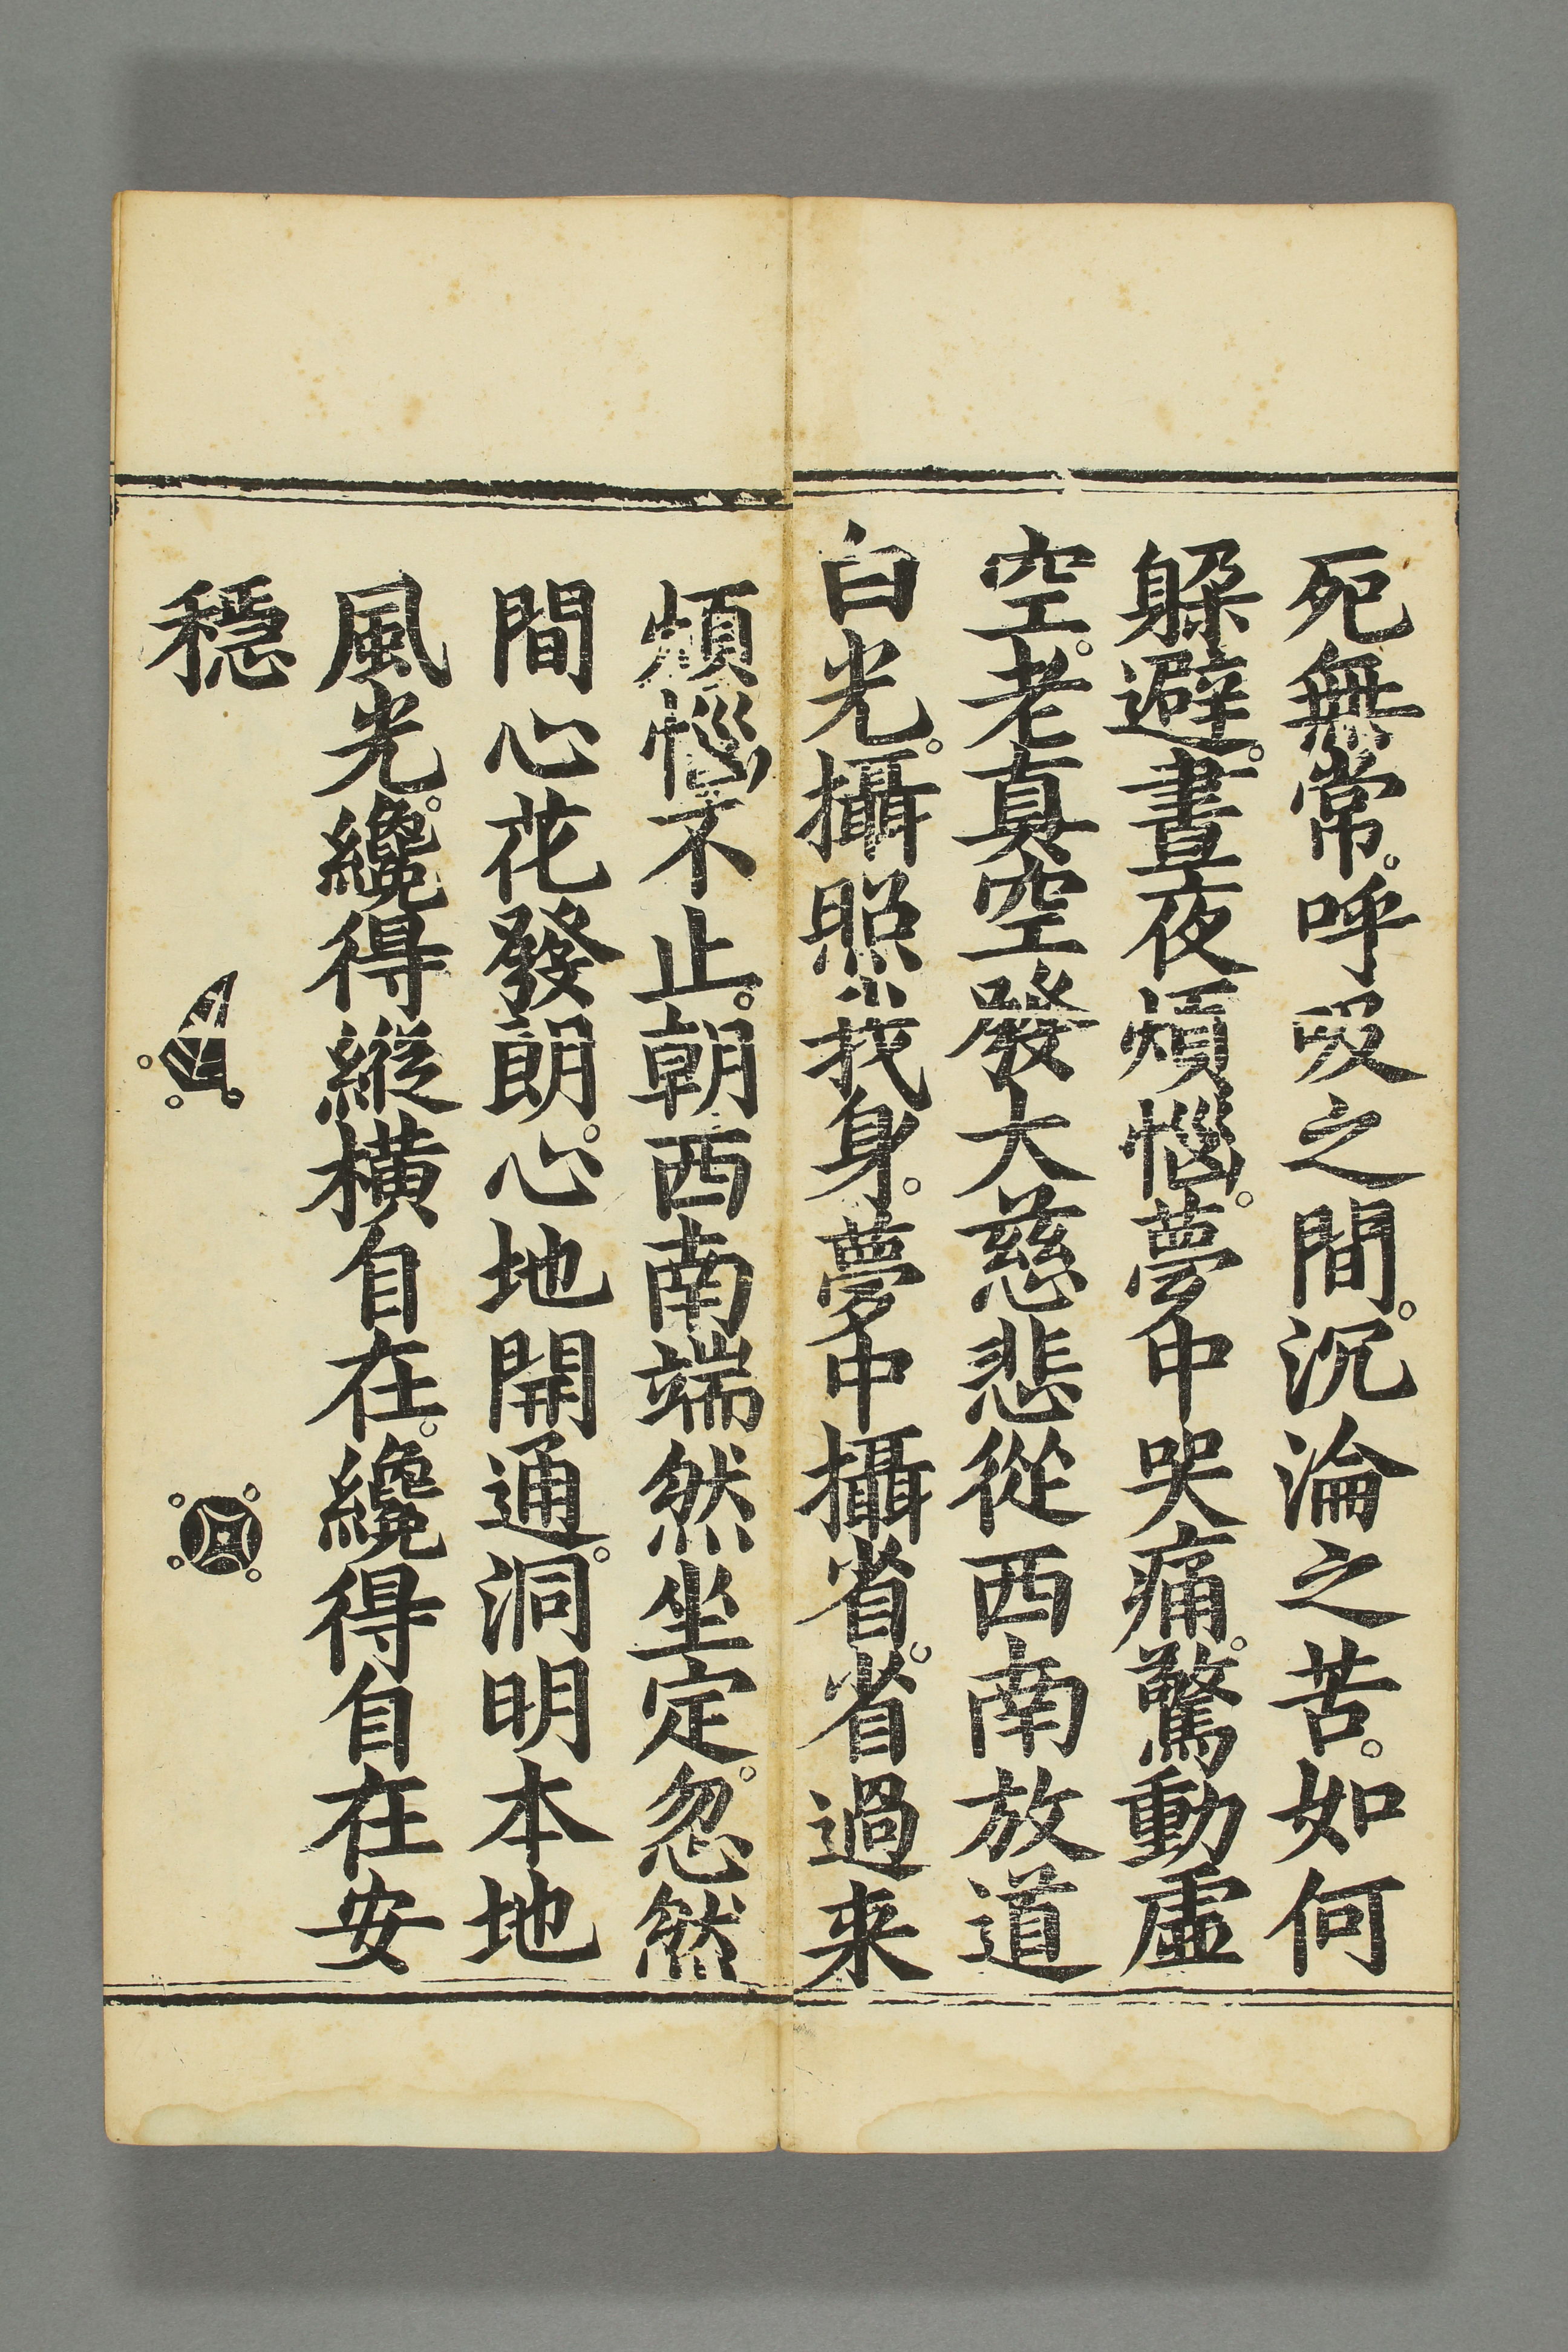 死無常。呼吸之間。沉淪之苦。如何
躱避。晝夜煩惱。夢中哭痛。驚動虛
空。老真空發大慈悲從西南放道
白光。攝照我身。夢中攝省。省過来
煩惱不止。朝西南端然坐定。忽然
間心花發朗。心地開通。洞明本地
風光。纔得縱橫自在。纔得自在安
穩